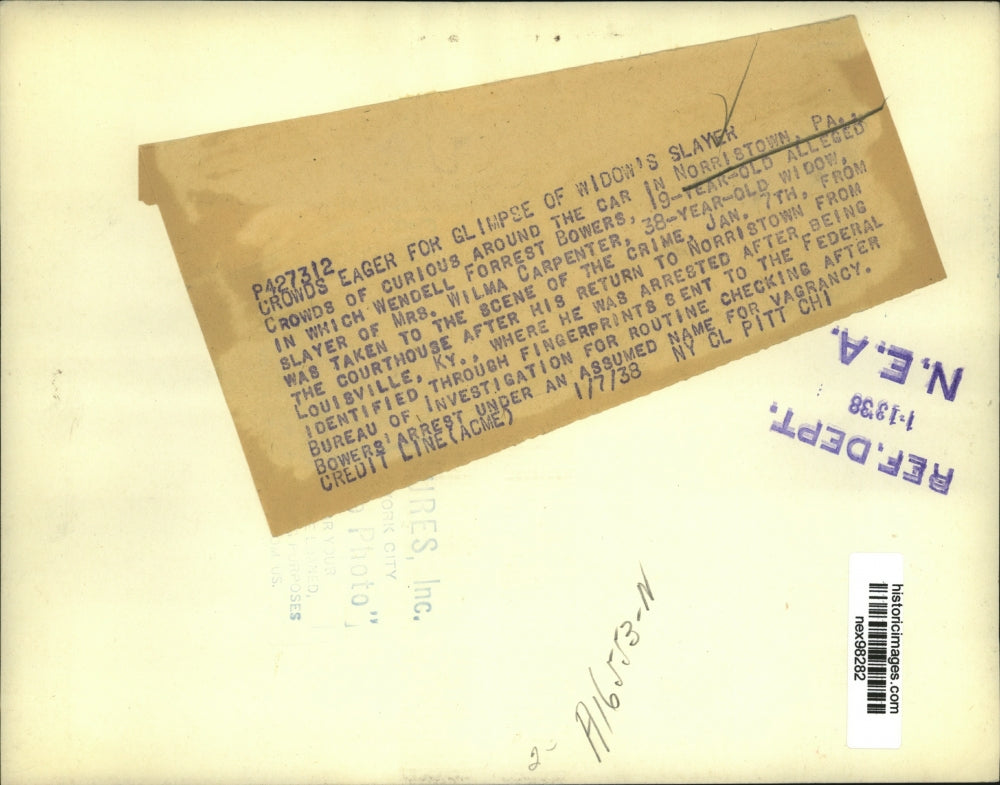 P427312
CROWDS EAGER FOR GLIMPSE OF WIDOW'S SLAYER
CROWDS OF CURIOUS AROUND THE CAR IN NORRISTOWN, PA.,
IN WHICH WENDELL FORREST BOWERS, 19-YEAR-OLD ALLEGED
SLAYER OF MRS. WILMA CARPENTER, 38-YEAR-OLD WIDOW,
WAS TAKEN TO THE SCENE OF THE CRIME, JAN. 7TH, FROM
THE COURTHOUSE AFTER HIS RETURN TO NORRISTOWN FROM
LOUISVILLE, KY., WHERE HE WAS ARRESTED AFTER BEING
IDENTIFIED THROUGH FINGERPRINTS SENT TO THE FEDERAL
BUREAU OF INVESTIGATION FOR ROUTINE CHECKING AFTER
BOWERS' ARREST UNDER AN ASSUMED NAME FOR VAGRANCY.
CREDIT LINE (ACME) 1/7/38 NY CL PITT CHI
N.E.A.
1-13 38
REF. DEPT.
URES, Inc.
ORK CITY
Photo"
R YOUR
NED,
PURPOSES
US.
A16553-N
2-
historicimages.com
nex98282